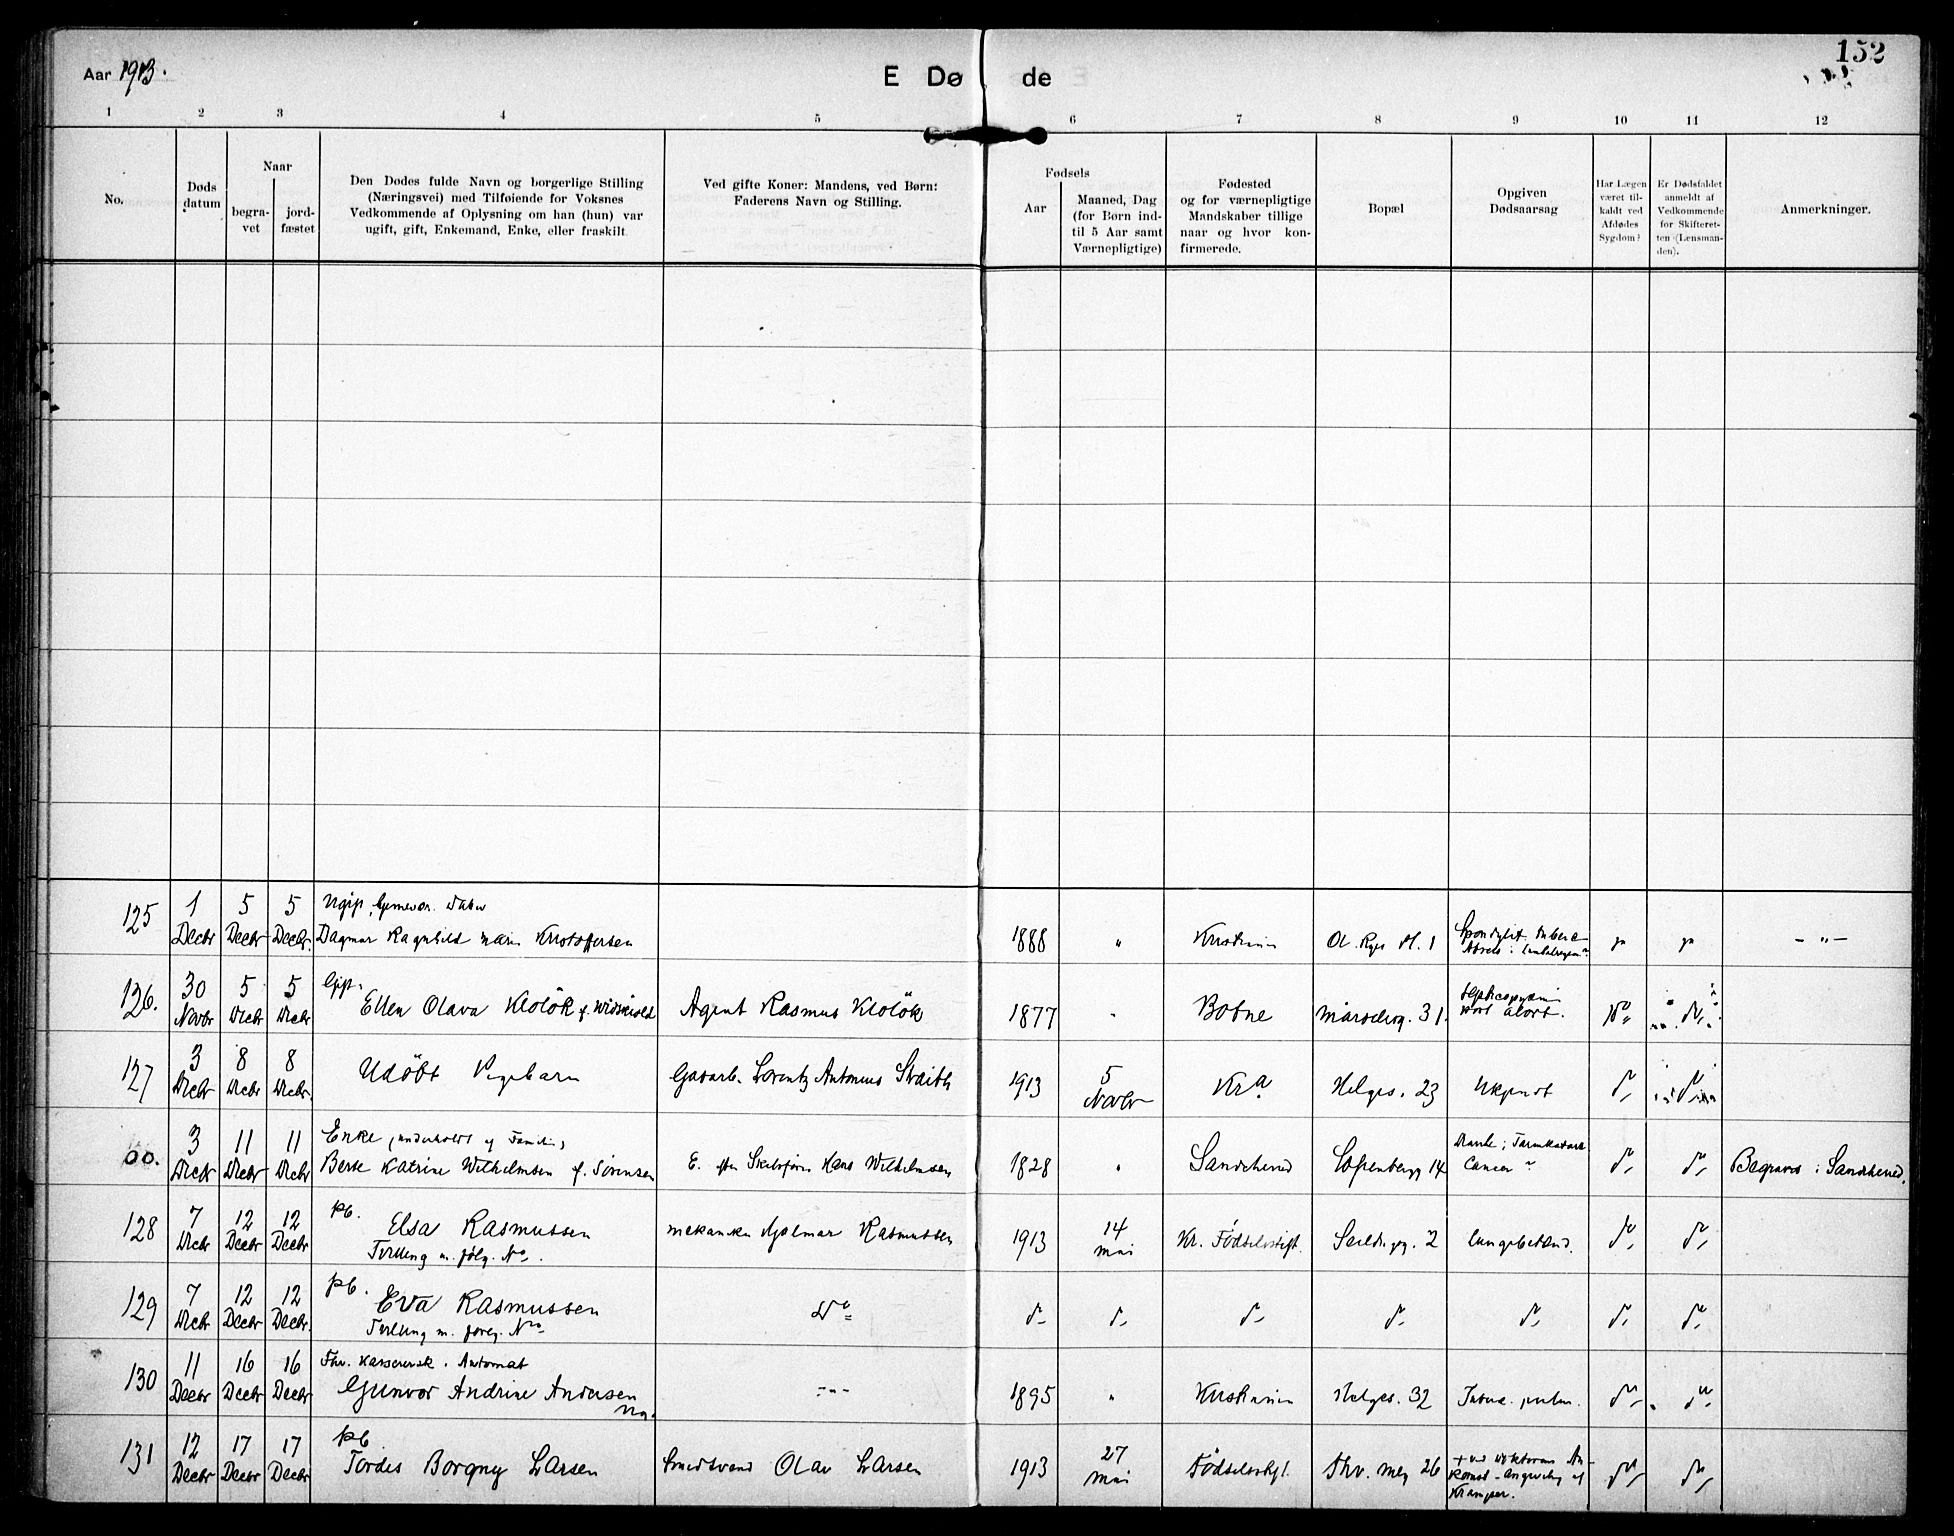 152
Aar 1913.
E Dø de
1 2 3 4 5 6 7 8 9 10 11 12
No.
Døds
datum
Naar
begra-
vet
jord-
fæstet
Den Dødes fulde Navn og borgerlige Stilling
(Næringsvei) med Tilføiende for Voksnes
Vedkommende af Oplysning om han (hun) var
ugift, gift, Enkemand, Enke, eller fraskilt.
Ved gifte Koner: Mandens, ved Børn:
Faderens Navn og Stilling.
Fødsels
Aar
Maaned, Dag
(for Børn ind-
til 5 Aar samt
Værnepligtige)
Fødested
og for værnepligtige
Mandskaber tillige
naar og hvor kon-
firmerede.
Bopæl
Opgiven
Dødsaarsag
Har Lægen
været til-
kaldt ved
Afdødes
Sygdom?
Er Dødsfaldet
anmeldt af
Vedkommende
for Skifteret-
ten (Lensman-
den).
Anmerkninger.
125 1 5 5 Ugift
Decbr Decbr Decbr. Dagmar Ragnhild Marie Kristoffersen 1888 " Kristiania Ol. Ryes Pl. 1 ja ja - " -
126. 30 5 5 Gift.
Novbr Decbr Decbr Ellen Olava Kloløk f. Agent Rasmus Kloløk 1877 Botne 31.
127 3 8 8
Decbr Decbr Decbr. Udøbt Pigebarn Lorentz Antonius 1913 5 Novbr Kra Helges. 23 Ukjendt
00. 3 11 11 Enke
Decbr Decbr Decbr Berte Katrine Wilhelmsen f. Sørensen E. efter Hans Wilhelmsen 1828 " Sandeherred Sofienbergg 14 Cancer Begraves i Sandeherred.
128 7 12 12 Pb.
Decbr Decbr Decbr Elsa Rasmussen Hjalmar Rasmussen 1913 14 Mai Kr. Fødselsstift. 2
Tvilling m. følg. No.
129 7 12 12 Pb.
Decbr Decbr Decbr. Eva Rasmussen Do
Tvilling m. foreg. No
130 11 16 16 Automat
Decbr Decbr Decbr Gunvor Andrine Andersen - " - 1895 " Kristiania Helges. 32 Tuberc. pulm.
Ug.
131 12 17 17 Pb
Decbr Decbr Decbr Tordis Borgny Larsen Smedsvend Olav Larsen 1913 27 Mai Thv. Mey 26
Kramper.